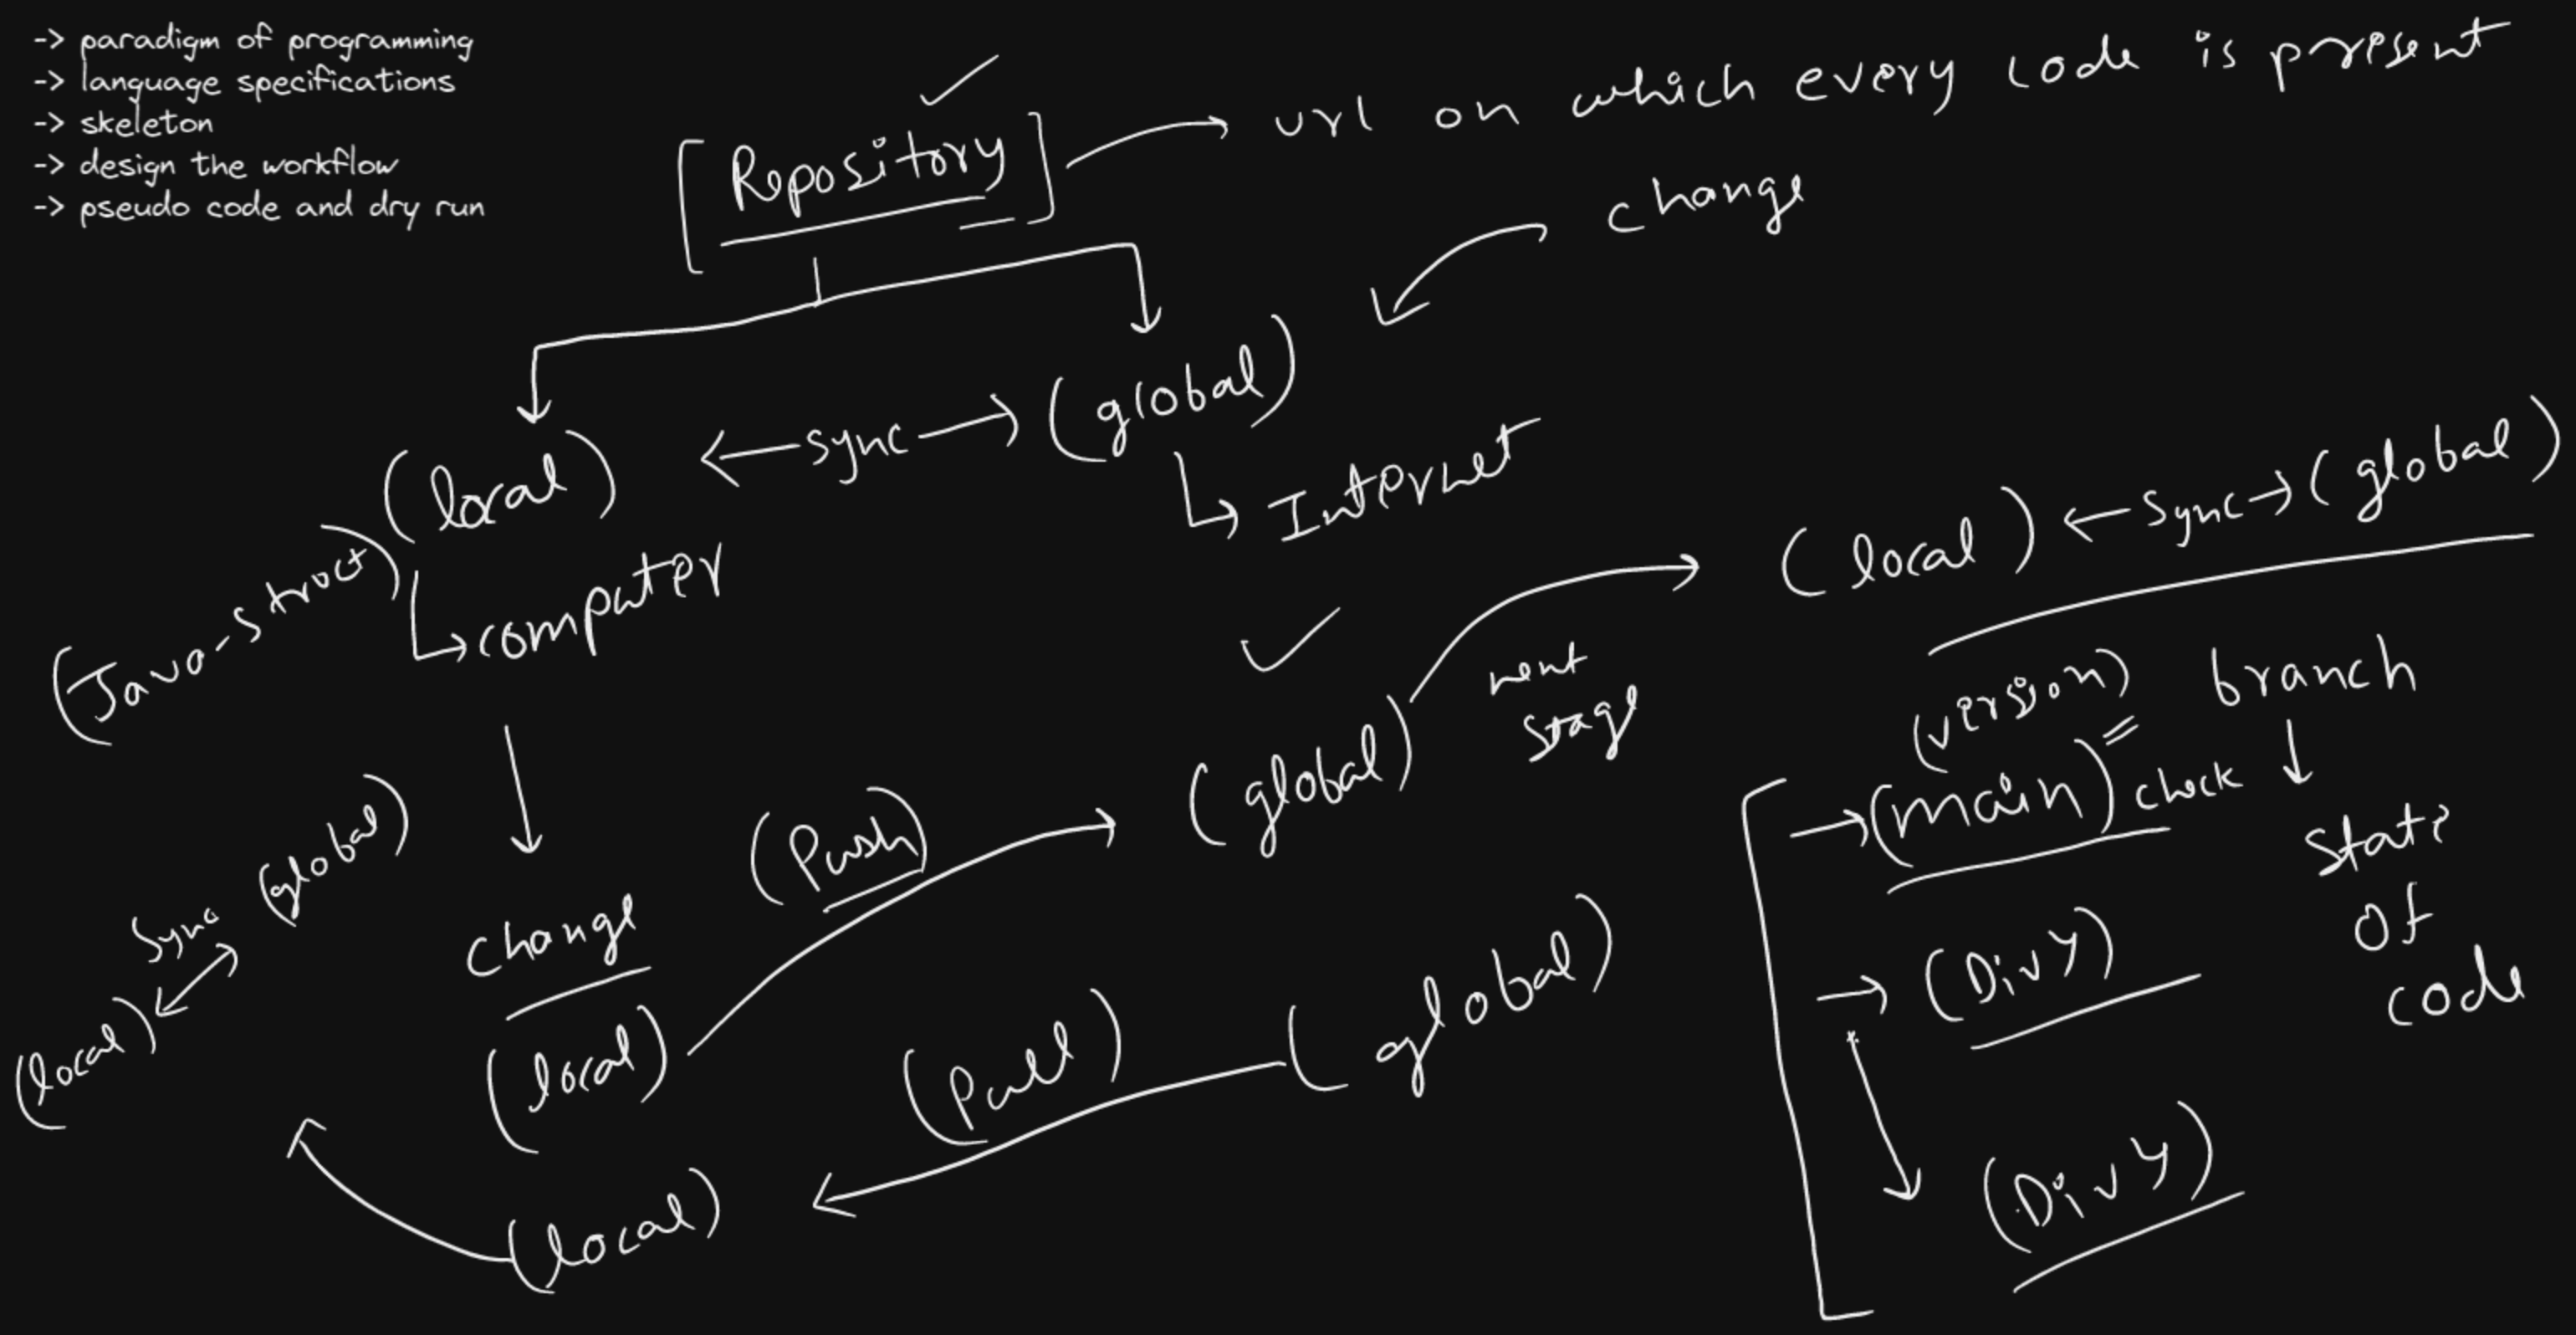 -> paradigm of programming
-> language specifications
-> skeleton
-> design the workflow
-> pseudo code and dry run
[Repository]
url on which every code is present
change
(local)
sync
(global)
Internet
(Java-struct)
computer
(local)
sync
(global)
next
stage
(version)
branch
(main)
check
state
of
code
(Div Y)
(Div Y)
(Push)
(global)
change
(local)
(Pull)
(global)
(local)
(global)
Sync
(local)